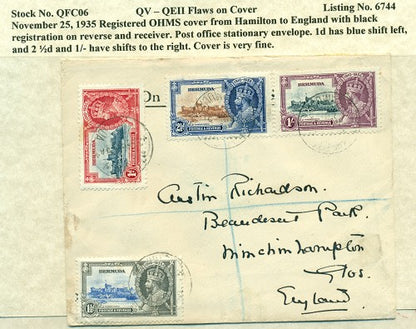 Stock No. QFC06 QV - QEII Flaws on Cover Listing No. 6744
November 25, 1935 Registered OHMS cover from Hamilton to England with black
registration on reverse and receiver. Post office stationary envelope. 1d has blue shift left,
and 2 ½d and 1/- have shifts to the right. Cover is very fine.
On
BERMUDA
BERMUDA
BERMUDA
1d
2½d
1/-
Austin Richardson.
Beaudesert Park.
Minchinhampton
Glos.
England.
BERMUDA
1½d